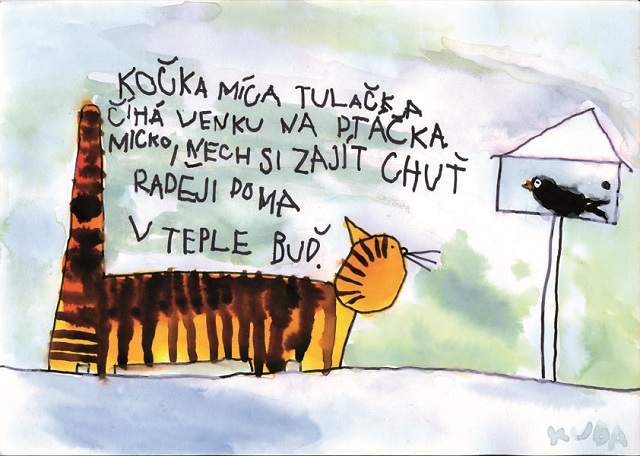 KOČKA MÍCA TULAČKA
ČÍHÁ VENKU NA PTÁČKA.
MICKO, NECH SI ZAJÍT CHUŤ
RADĚJI DOMA
V TEPLE BUĎ.
KUBA